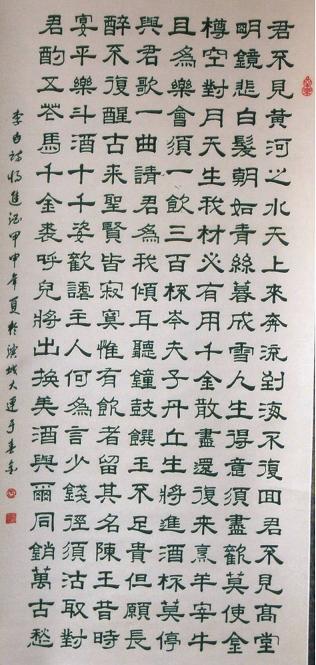 君不見黃河之水天上來奔流到海不復回君不見高堂
明鏡悲白髮朝如青絲暮成雪人生得意須盡歡莫使金
樽空對月天生我材必有用千金散盡還復來烹羊宰牛
且為樂會須一飲三百杯岑夫子丹丘生將進酒杯莫停
與君歌一曲請君為我傾耳聽鐘鼓饌玉不足貴但願長
醉不復醒古來聖賢皆寂寞惟有飲者留其名陳王昔時
宴平樂斗酒十千姿歡謔主人何為言少錢徑須沽取對
君酌五花馬千金裘呼兒將出換美酒與爾同銷萬古愁
李白詩將進酒甲申年夏於濱城大連于春